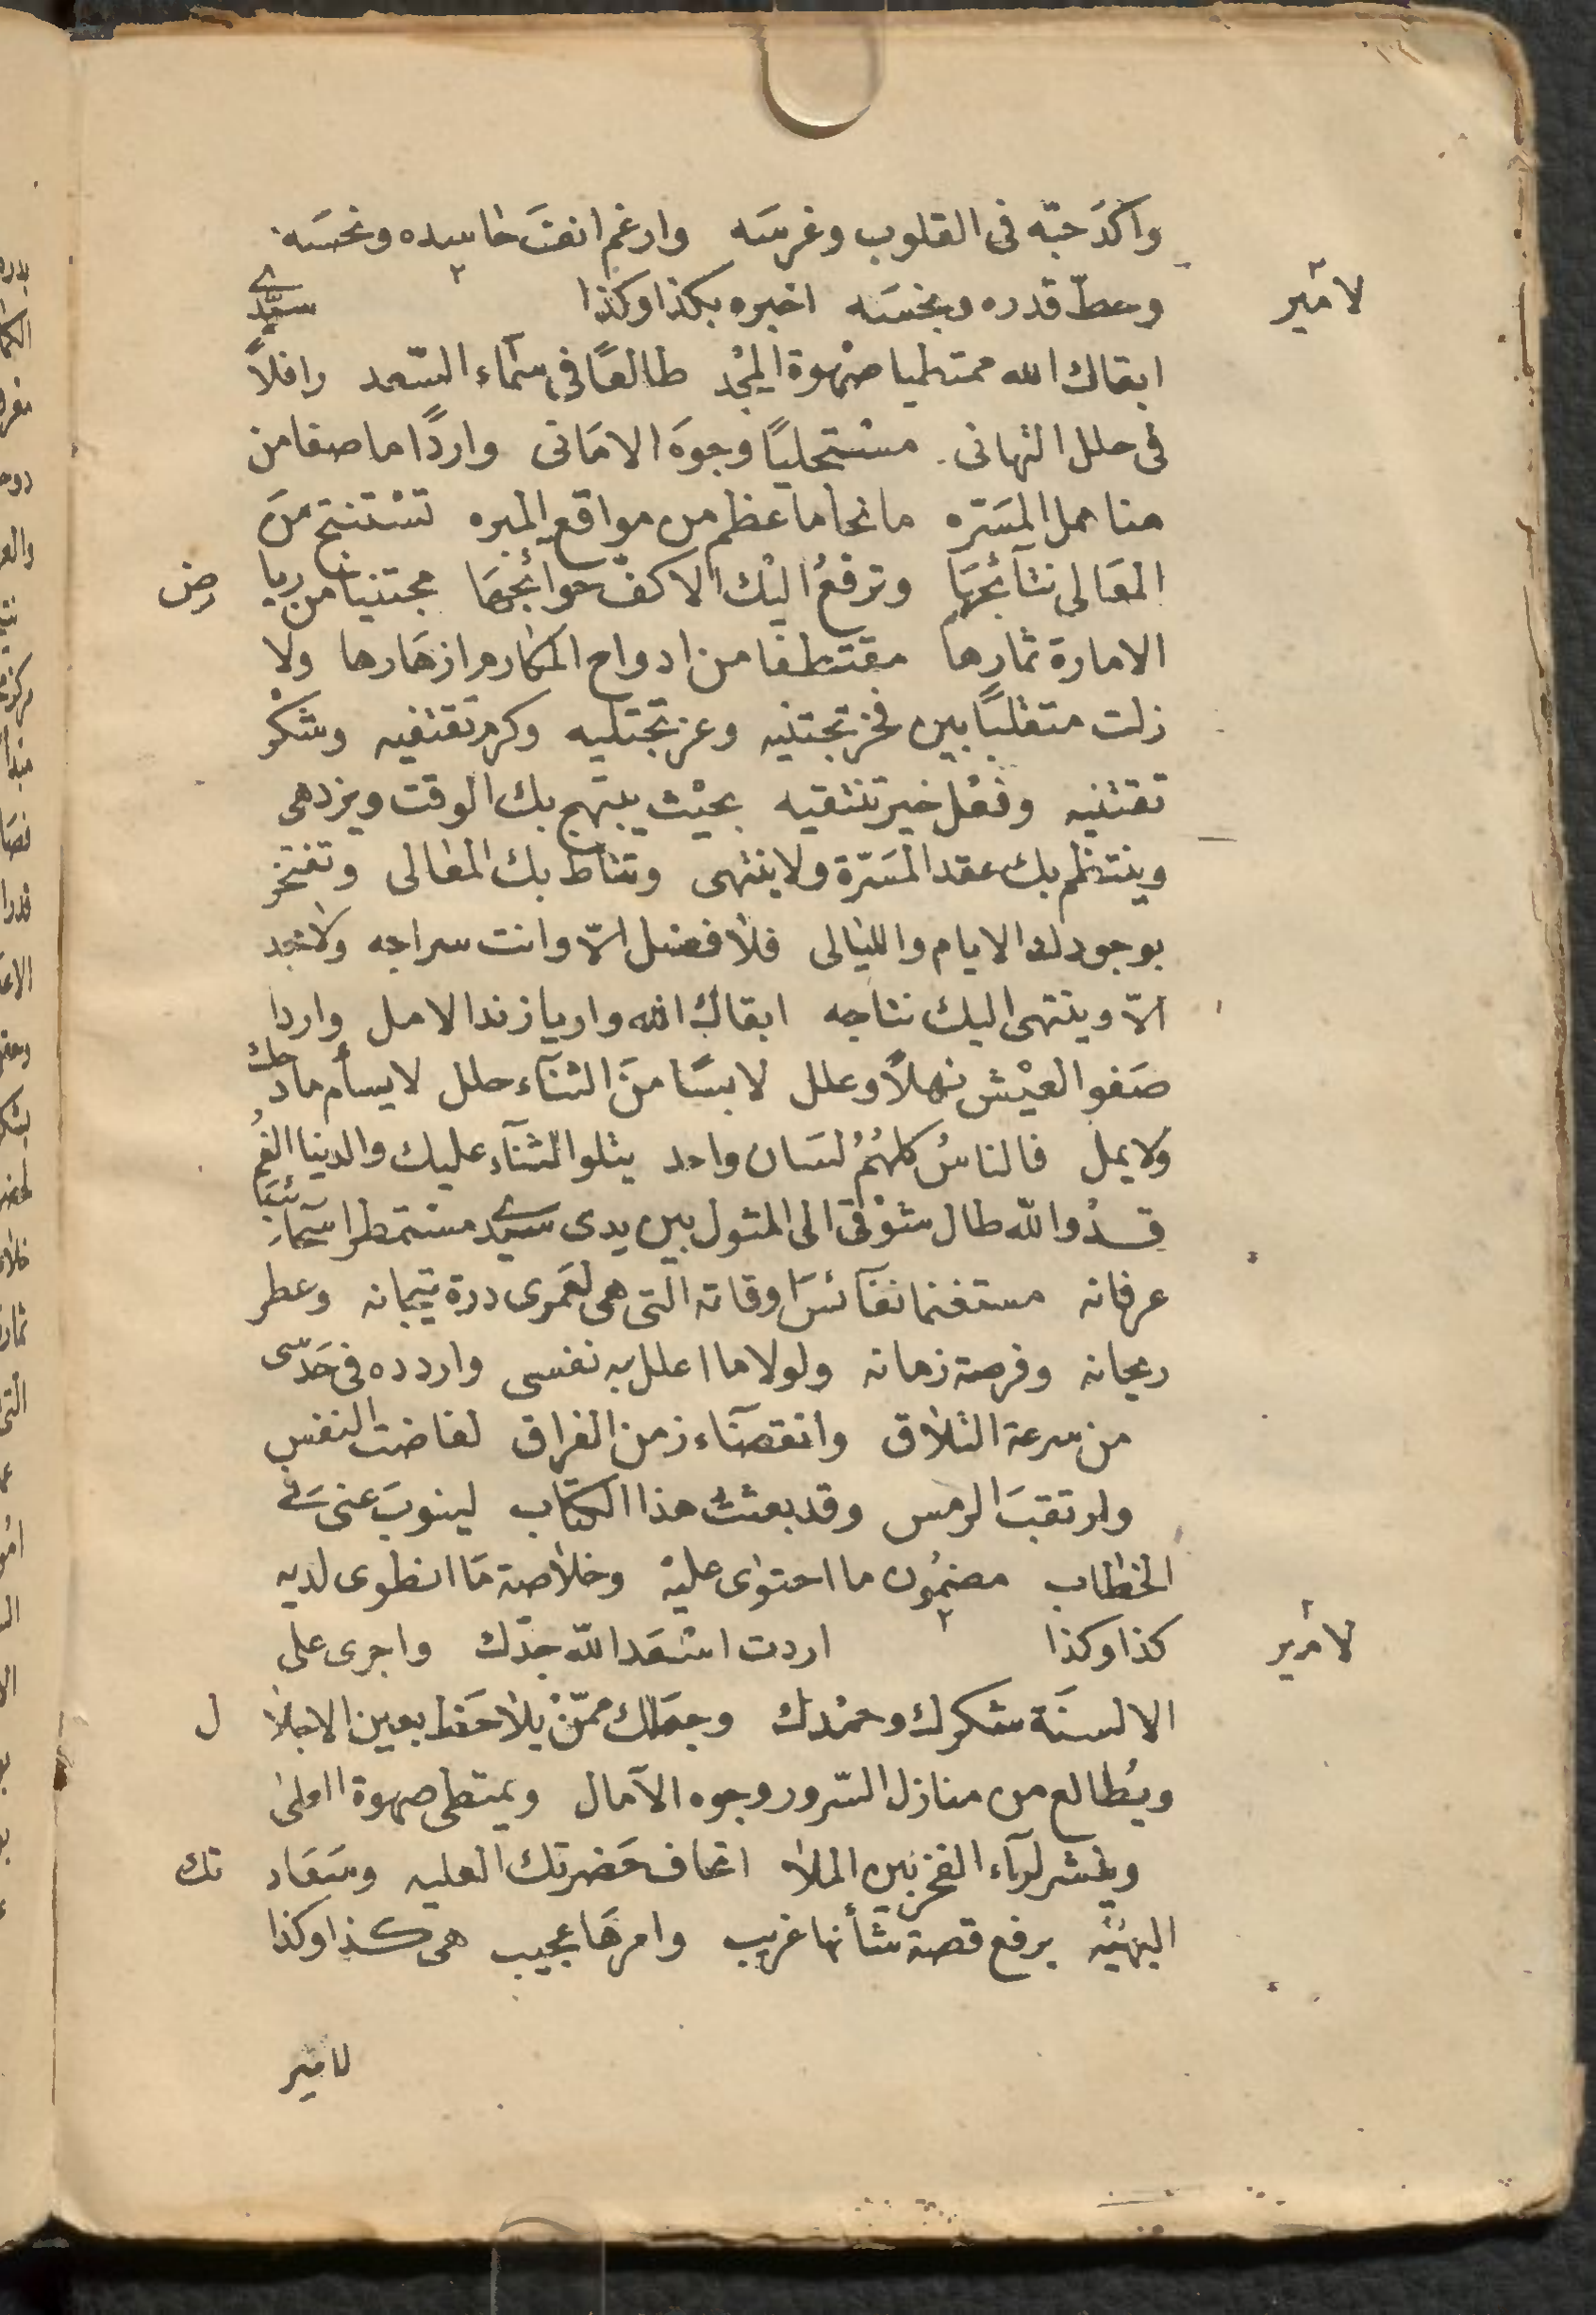 واكدَ حبّه فى القلوب وغرسَه وارغم انفَ حاسِده ونحسَه
لامير وحطّ قدره وبخسَه اخبره بكذا وكذا ٢ سيّدى
ابقاك الله ممتطيا صهْوة المجْد طالعًا فى سَماء السّعد رافلاً
فى حلل التهانى مسْتجليًا وجوهَ الامَانى واردًا ما صفا من
مناهل المسَرّه مانحا ما عظم من مواقع المبره تسْتنتج منَ
المعَالى نتآئجهَا وترفعُ اليْك الاكفّ حوآئجهَا مجتنيا من رياض
الامارة ثمارها مقتطفا من ادواح المكارم ازهَارها ولا
زلت متقلبًا بين فخر تجتنيه وعز تجْتليه وكرم تقتفيه وشكْر
تقتنيه وفعْل خير تنتقيه بحيْث يبتهج بك الوقت ويزدهى
وينتظم بك عقد المسَرّة ولا ينتهى وتناط بك المعالى وتفتخر
بوجودك الايام والليالى فلا فضل الاّ وانت سراجه ولا مجد
الاّ وينتهى اليك نتاجه ابقاك الله واريا زند الامل واردا
صَفو العيْش نهلاً وعلل لابسًا منَ الثنآء حلل لا يسأم مادحك
ولا يمل فالناسُ كلهُمُ لسَان واحد يتلو الثنآء عليك والدنيا الفمُ
قدْ والله طال شوْقى الى المثول بين يدى سيدى مستمطرا سَحآئبَ
عرفانه مستغنما نفآئسَ اوقاته التى هى لعَمرى درة تيجانه وعطر
ريحانه وفرصة زمانه ولولا ما اعلل به نفسى واردده فى حَدْسى
من سرعة التلاق وانقضآء زمن الفراق لفاضت النفس
وارتقبَ الرمس وقد بعثتُ هذا الكتاب لينوبَ عنى فى
الخطاب مضمُون ما احتوى عليْه وخلاصة مَا انطوى لديه
لامير كذا وكذا ٢ اردت اسْعَد الله جدّك واجرى على
الالسنَة شكرك وحمْدك وجعَلك ممّنْ يلاحَظ بعين الاجلال
ويُطالع من منازل السّرور وجوه الآمال ويمتطى صهوة العلىٰ
وينشر لوآء الفخر بين الملا اتحاف حَضرتك العليه وسَعَادتك
البهيّه برفع قصة شأنها غريب وامرهَا عجيب هى كذا وكذا
لامير